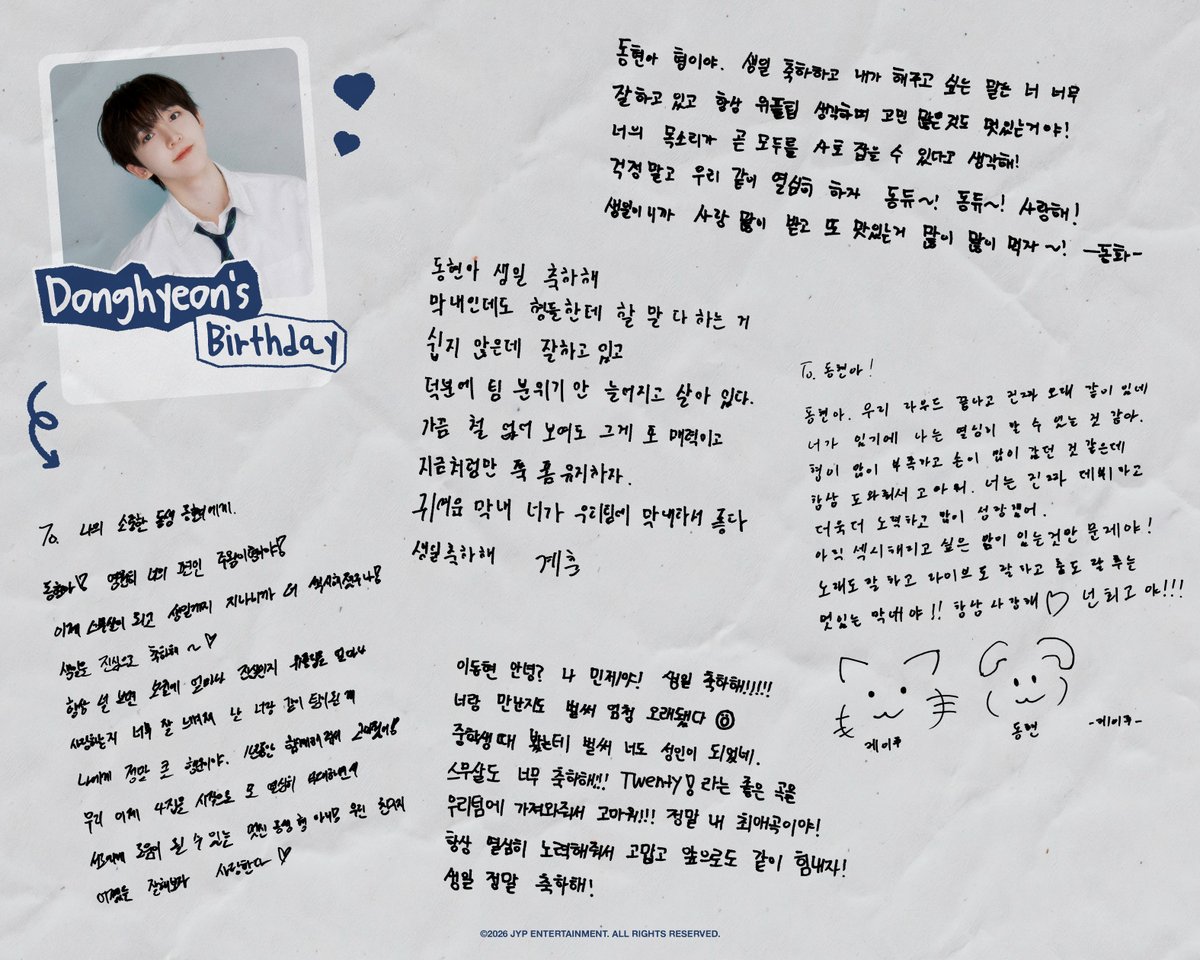 Donghyeon's
Birthday
동현아 형이야. 생일 축하하고 내가 해주고 싶은 말은 너 너무
잘하고 있고 항상 위플립 생각하며 고민 많은것도 멋있는거야!
너의 목소리가 곧 모두를 사로 잡을 수 있다고 생각해!
걱정말고 우리 같이 열심히 하자 동듀~! 동듀~! 사랑해!
생일이니까 사랑 많이 받고 또 맛있는거 많이 많이 먹자~! -동화-
동현아 생일 축하해
막내인데도 형들한테 할 말 다 하는 거
쉽지 않은데 잘하고 있고
덕분에 팀 분위기 안 늘어지고 살아 있다.
가끔 철 없어 보여도 그게 또 매력이고
지금처럼만 쭉 폼 유지하자.
귀여운 막내 너가 우리팀에 막내라서 좋다
생일축하해 계훈
To. 동현아!
동현아. 우리 라우드 끝나고 진짜 오래 같이 있네
너가 있기에 나는 열심히 할 수 있는 것 같아.
형이 많이 부족하고 손이 많이 갔던 것 같은데
항상 도와줘서 고마워. 너는 진짜 데뷔하고
더욱더 노력하고 많이 성장했어.
아직 섹시해지고 싶은 맘이 있는것만 문제야!
노래도 잘 하고 라이브도 잘 하고 춤도 잘 추는
멋있는 막내야!! 항상 사랑해♡ 넌 최고야!!!
케이주
동현
-케이주-
To. 나의 소중한 동생 동현에게.
동현아! 영원히 너의 편인 주왕이형이야!
이제 스무살이 되고 생일까지 지나니까 더 섹시해졌구나!
생일을 진심으로 축하해 ~ ♡
항상 널 보면
사랑하는지 너무 잘 느껴져 난 너랑 같이
나에게 정말 큰 행운이야. 고마웠어!
우리 이제 4집을 시작으로 또 열심히
서로에게 도움이 될 수 있는 멋진 동생 형
잘해보자 사랑한다~ ♡
이동현 안녕? 나 민제야! 생일 축하해!!!!!
너랑 만난지도 벌써 엄청 오래됐다
중학생때 봤는데 벌써 너도 성인이 되었네.
스무살도 너무 축하해!!! Twenty! 라는 좋은 곡을
우리팀에 가져와줘서 고마워!!! 정말 내 최애곡이야!
항상 열심히 노력해줘서 고맙고 앞으로도 같이 힘내자!
생일 정말 축하해!
©2026 JYP ENTERTAINMENT. ALL RIGHTS RESERVED.